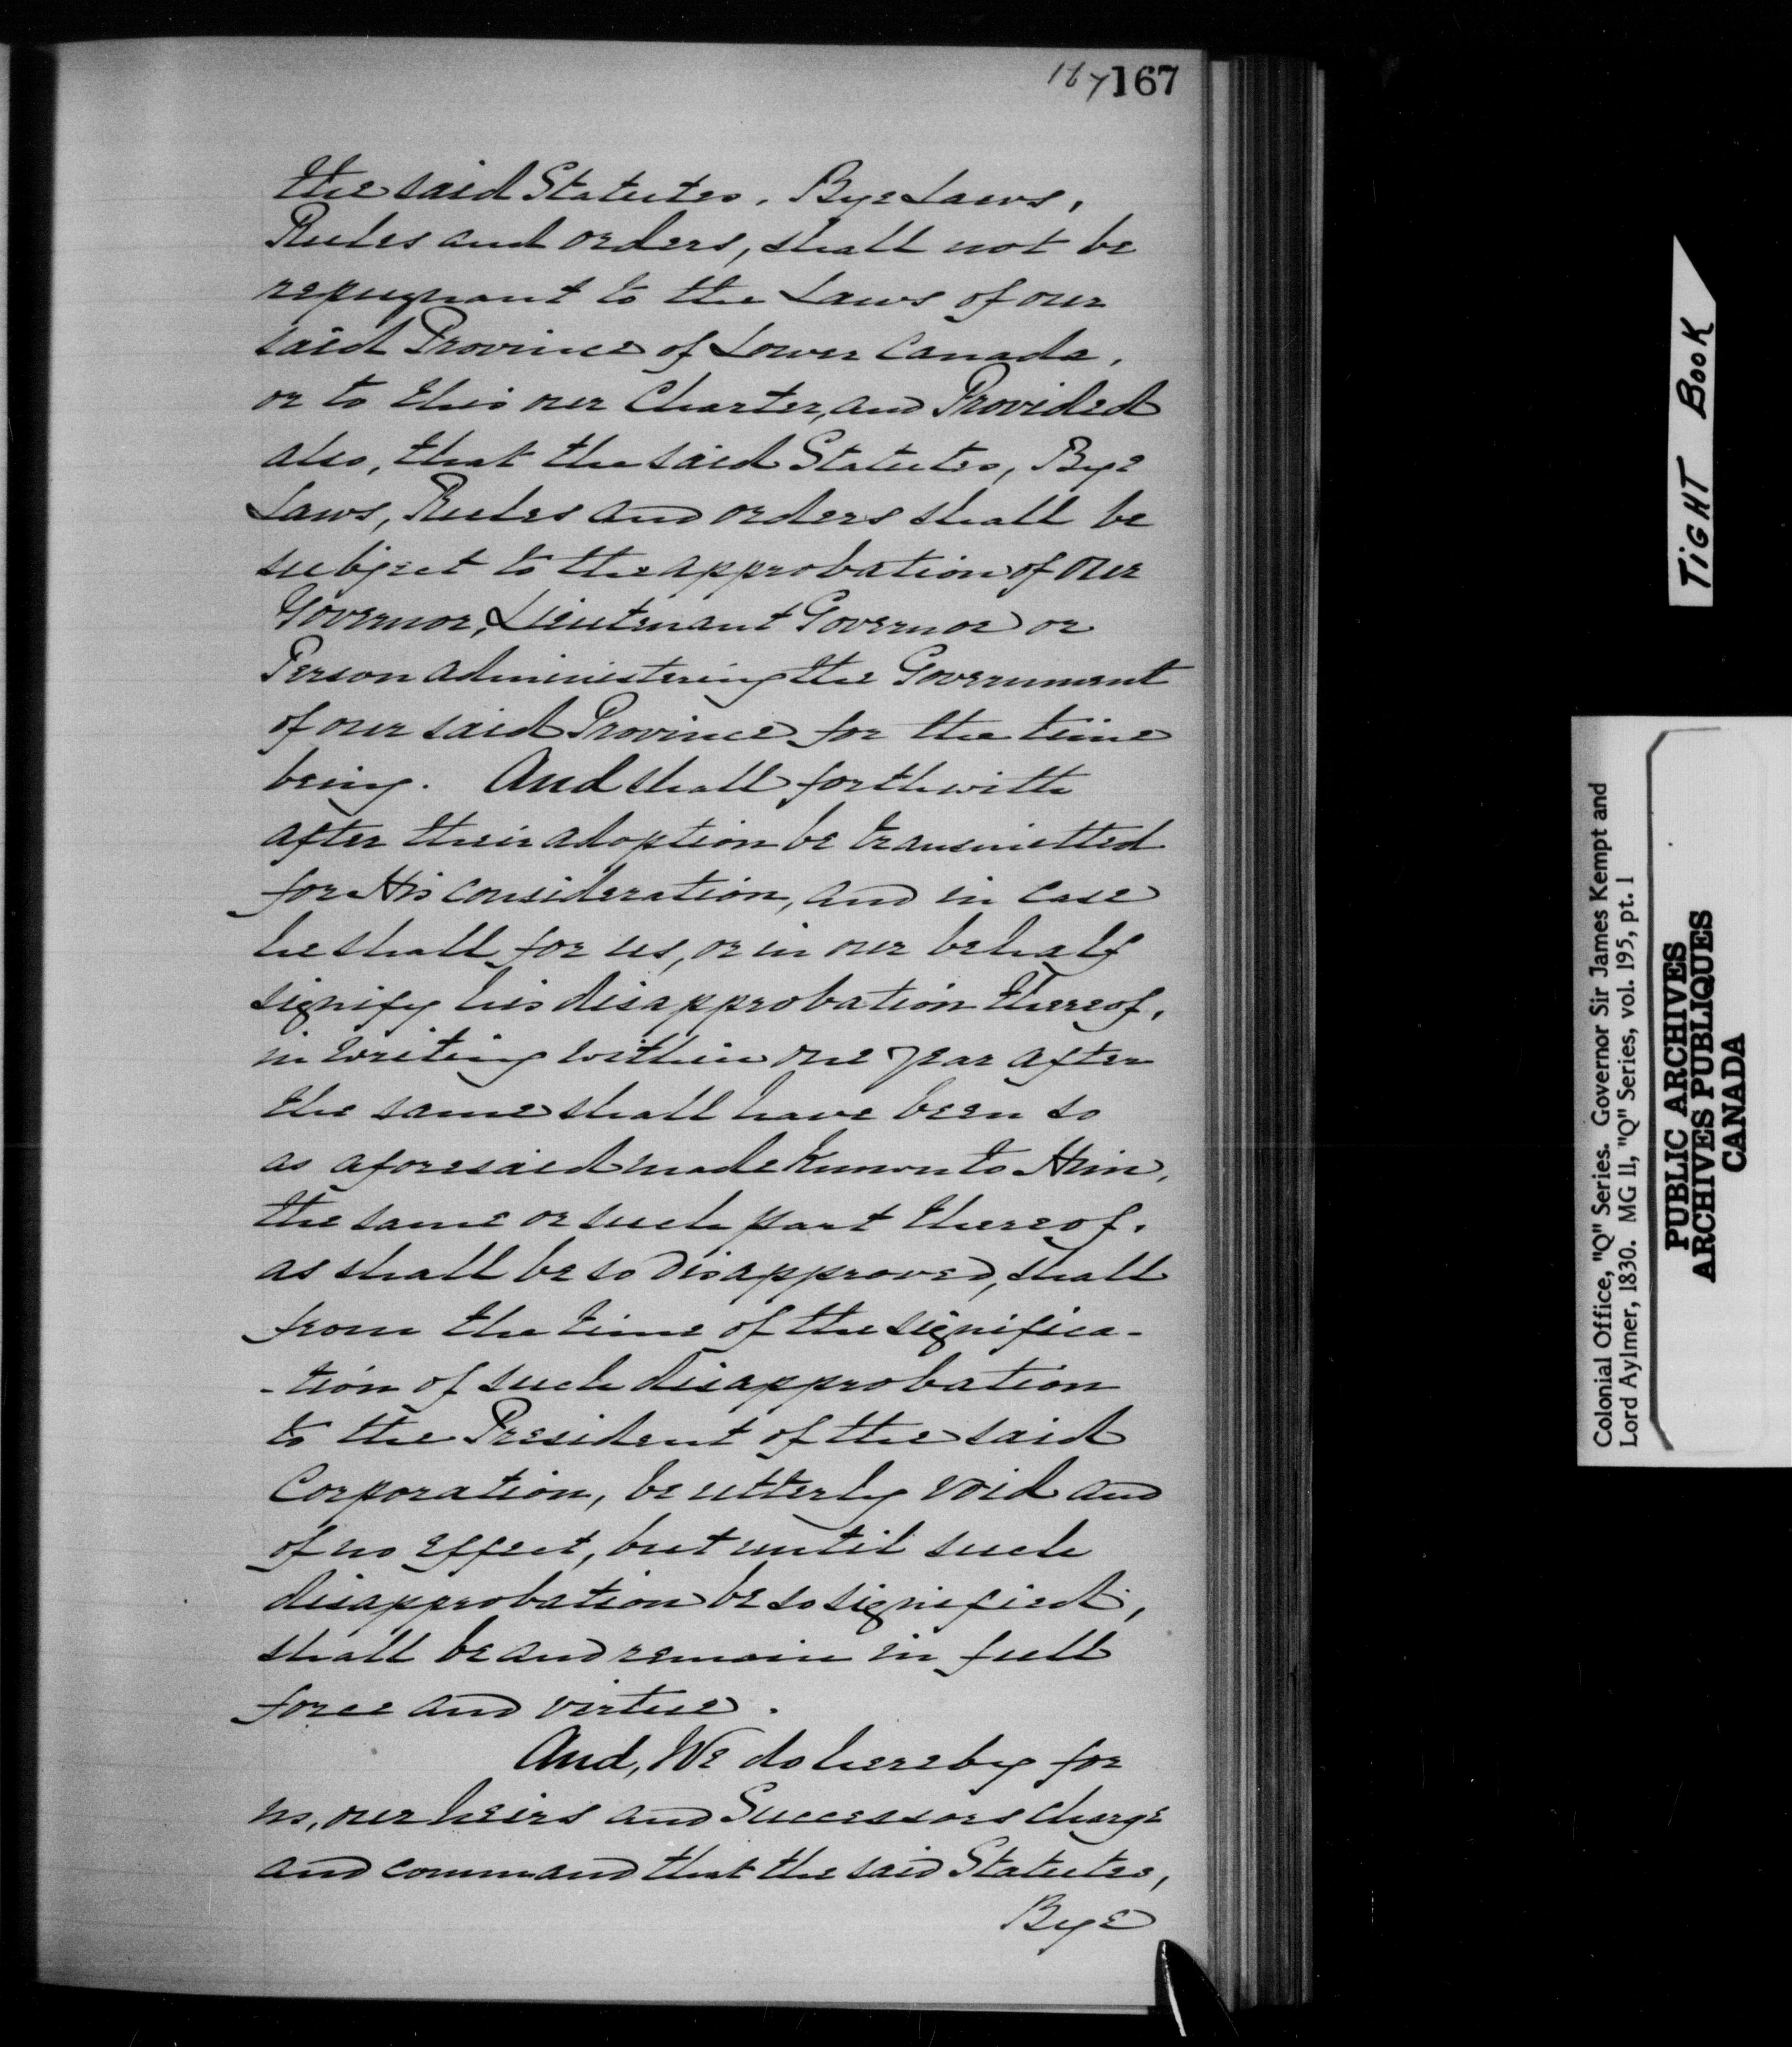 167 167
the said Statutes, Bye Laws,
Rules and orders, shall not be
repugnant to the Laws of our
said Province of Lower Canada,
or to this our Charter, and Provided
also, that the said Statutes, Bye
Laws, Rules and orders shall be
subject to the approbation of our
Governor, Lieutenant Governor or
Person administering the Government
of our said Province for the time
being. And shall forthwith
after their adoption be transmitted
for His consideration, and in case
he shall for us, or in our behalf
signify his disapprobation thereof,
in writing within one year after
the same shall have been so
as aforesaid made known to Him,
the same or such part thereof,
as shall be so disapproved, shall
from the time of the significa-
-tion of such disapprobation
to the President of the said
Corporation, be utterly void and
of no effect, but until such
disapprobation be so signified,
shall be and remain in full
force and virtue.
And, We do hereby for
us, our heirs and Successors charge
and command that the said Statutes,
Bye
TIGHT BOOK
Colonial Office, "Q" Series. Governor Sir James Kempt and
Lord Aylmer, 1830. MG 11, "Q" Series, vol. 195, pt. 1
PUBLIC ARCHIVES
ARCHIVES PUBLIQUES
CANADA